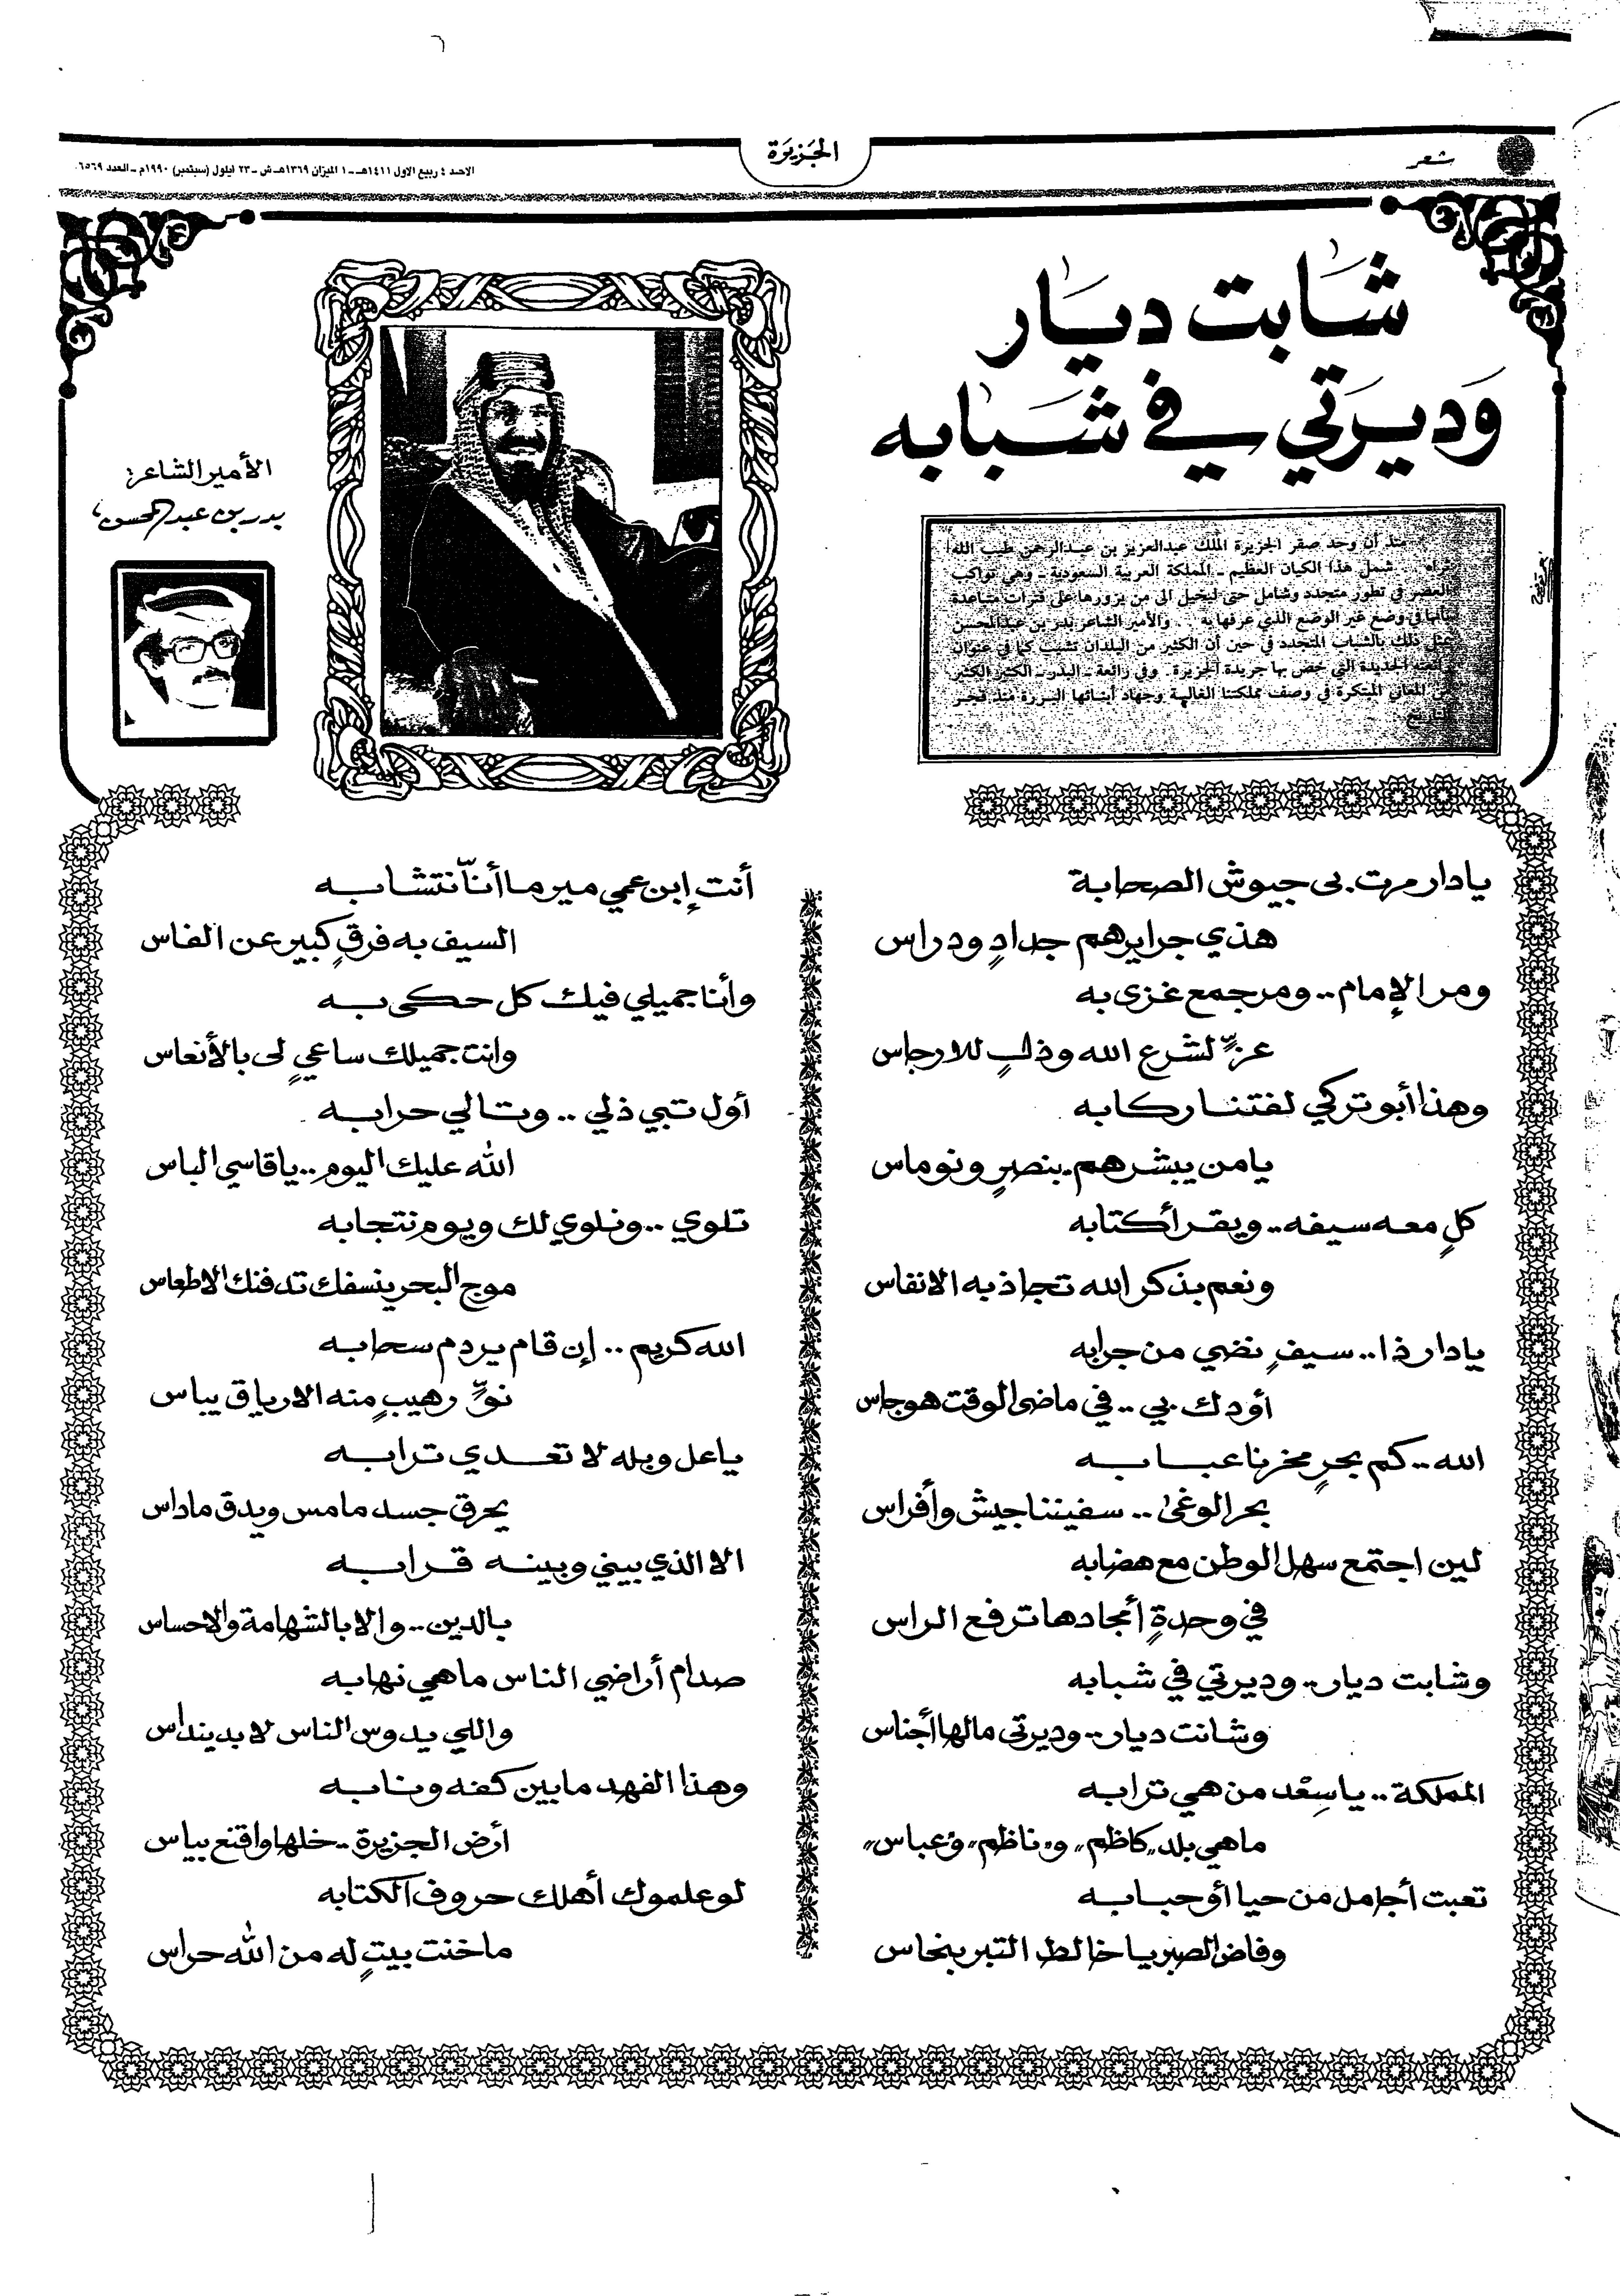 شعر
الجزيرة
الاحد ٤ ربيع الاول ١٤١١هـ ـ ١ الميزان ١٣٦٩هـ ش ـ ٢٣ ايلول (سبتمبر) ١٩٩٠م ـ العدد ٦٥٦٩
شابت ديار
وديرتي في شبابه
منذ أن وحد صقر الجزيرة الملك عبدالعزيز بن عبدالرحمن طيب الله
ثراه .. شمل هذا الكيان العظيم ـ المملكة العربية السعودية ـ وهي تواكب
العصر في تطور متجدد وشامل حتى ليخيل الى من يزورها على فترات متباعدة
بأنها في وضع غير الوضع الذي عرفها به .. والأمير الشاعر بدر بن عبدالمحسن
يمثل ذلك بالشباب المتجدد في حين أن الكثير من البلدان تشيب كما في عنوان
الجديدة التي خص بها جريدة الجزيرة. وفي رائعة ـ البدر ـ الكثير الكثير
المعاني المبتكرة في وصف مملكتنا الغالية وجهاد أبنائها البررة منذ فجر
التاريخ
الأمير الشاعر:
بدر بن عبدالمحسن
يادار مرت بي جيوش الصحابة
هذي جرايرهم جدادٍ ودراس
ومر الإمام.. ومر جمع غزى به
عزٍّ لشرع الله وذلٍ للارجاس
وهذا أبو تركي لفتنا ركابه
يامن يبشرهم بنصرٍ ونوماس
كلٍ معه سيفه.. ويقرأ كتابه
ونعم بذكر الله تجاذبه الانفاس
يادار ذا.. سيفٍ نضي من جرابه
أودك بي.. في ماضي الوقت هوجاس
الله.. كم بحرٍ مخرنا عبابه
بحر الوغى.. سفيننا جيش وأفراس
لين اجتمع سهل الوطن مع هضابه
في وحدةٍ أمجادها ترفع الراس
وشابت ديار.. وديرتي في شبابه
وشانت ديار.. وديرتي مالها أجناس
المملكة.. ياسِعْد من هي ترابه
ماهي بلد "كاظم" و"ناظم" و"عباس"
تعبت أجامل من حيا أو حبابه
وفاض الصبر يا خالط التبر بنحاس
أنت إبن عمي مير ما أنّا نتشابه
السيف به فرقٍ كبير عن الفاس
وأنا جميلي فيك كل حكى به
وانت جميلك ساعيٍ لي بالأنعاس
أول تبي ذلي .. وتالي حرابه
الله عليك اليوم.. ياقاسي الباس
تلوي .. ونلوي لك ويوم نتجابه
موج البحر ينسفك تدفنك الاطعاس
الله كريم .. إن قام يردم سحابه
نوٍّ رهيبٍ منه الارياق يباس
ياعل وبله لا تعدي ترابه
يحرق جسد مامس ويدق ماداس
الا الذي بيني وبينه قرابه
بالدين.. والا بالشهامة والاحساس
صدام أراضي الناس ماهي نهابه
واللي يدوس الناس لابد ينداس
وهذا الفهد مابين كفه ونابه
أرض الجزيرة.. خلها واقنع بياس
لو علموك أهلك حروف الكتابه
ما خنت بيتٍ له من الله حراس